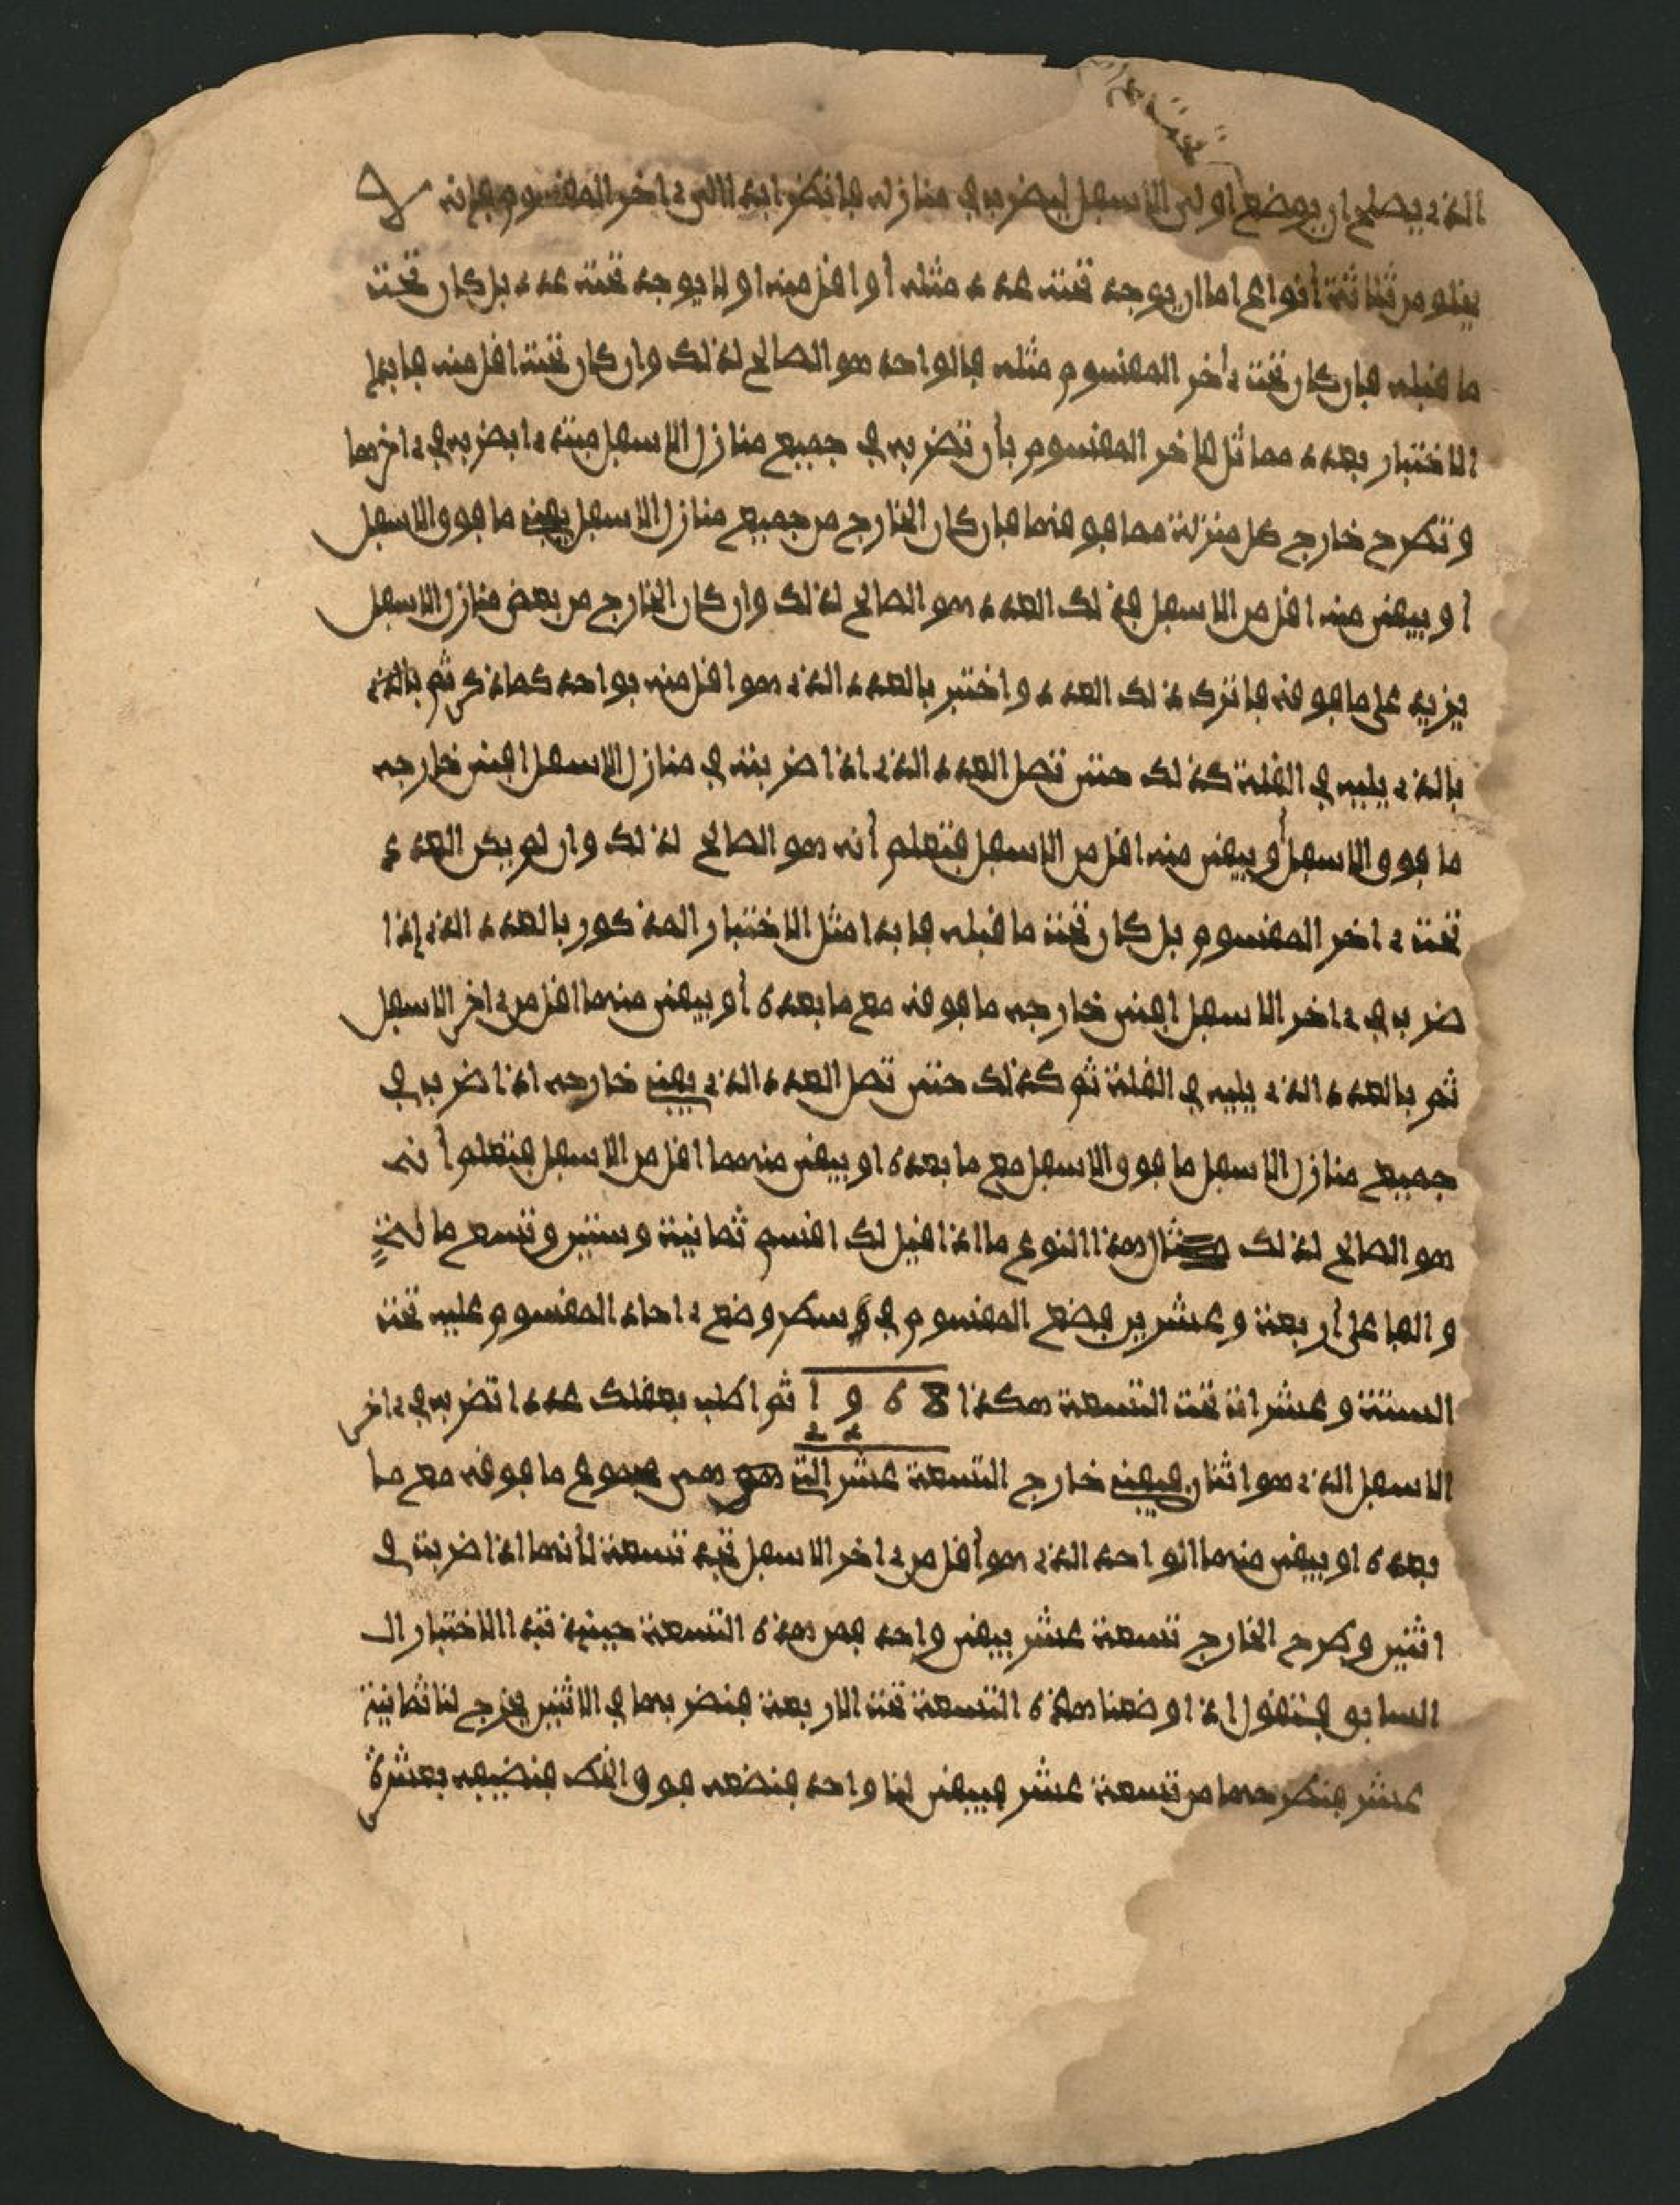 الذي يصلح ان يوضع اولى الاسفل ليضرب في منازله فانظر ابدا الى ءاخر المقسوم فإنه لا
يخلو من ثلاثة أنواع اما ان يوجد تحته عدد مثله أو اقل منه او لا يوجد تحته عدد بل كان تحت
ما قبله فإن كان تحت ءاخر المقسوم مثله فالواحد هو الصالح لذلك وان كان تحته اقل منه فابدا
الاختبار بعدد مماثل لاخر المقسوم بأن تضربه في جميع منازل الاسفل مبتدءا بضربه في ءاخرها
و تطرح خارج كل منزلة مما فوقها فإن كان الخارج من جميع منازل الاسفل يفنى ما فوق الاسفل
أو يبقى منه اقل من الاسفل فذلك العدد هو الصالح لذلك وان كان الخارج من بعض منازل الاسفل
يزيد على ما فوقه فاترك ذلك العدد واختبر بالعدد الذي هو اقل منه بواحد كما ذكر ثم بالذي
بالذي يليه في القلة كذلك حتى تصل العدد الذي اذا ضربته في منازل الاسفل افنى خارجه
ما فوق الاسفل أو يبقى منه اقل من الاسفل فتعلم أنه هو الصالح لذلك وان لم يكن العدد
تحت ءاخر المقسوم بل كان تحت ما قبله فابدا مثل الاختبار المذكور بالعدد الذي إذا
ضرب في ءاخر الاسفل افنى خارجه ما فوقه مع ما بعده أو يبقى منهما اقل من ءاخر الاسفل
ثم بالعدد الذي يليه في القلة ثم كذلك حتى تصل العدد الذي يفنى خارجه اذا ضرب في
جميع منازل الاسفل ما فوق الاسفل مع ما بعده او يبقى منهما اقل من الاسفل فتعلم أنه
هو الصالح لذلك مثال هذا النوع ما اذا قيل لك اقسم ثمانية وستين وتسع مائة
و الفا على أربعة و عشرين فضع المقسوم في سطر وضع ءاحاد المقسوم عليه تحت
الستة و عشراته تحت التسعة هكذا 8 6 9 1 ثم اطلب بعقلك عددا تضربه في ءاخر
2 4
الاسفل الذي هو اثنان فيفنى خارج التسعة عشر التي هى مجموع ما فوقه مع ما
بعده او يبقى منهما الواحد الذي هو أقل من ءاخر الاسفل تجد تسعة لأنها اذا ضربت في
اثنين وطرح الخارج تسعة عشر يبقى واحد فمن هذه التسعة حينئذ تبدا الاختبار الـ
السابق فنقول اذا وضعنا هذه التسعة تحت الاربعة فنضربها في الاثنين يخرج لنا ثمانية
عشر فنطرحها من تسعة عشر فيبقى لنا واحد فنضعه فوق الخط فنضيفه بعشرة